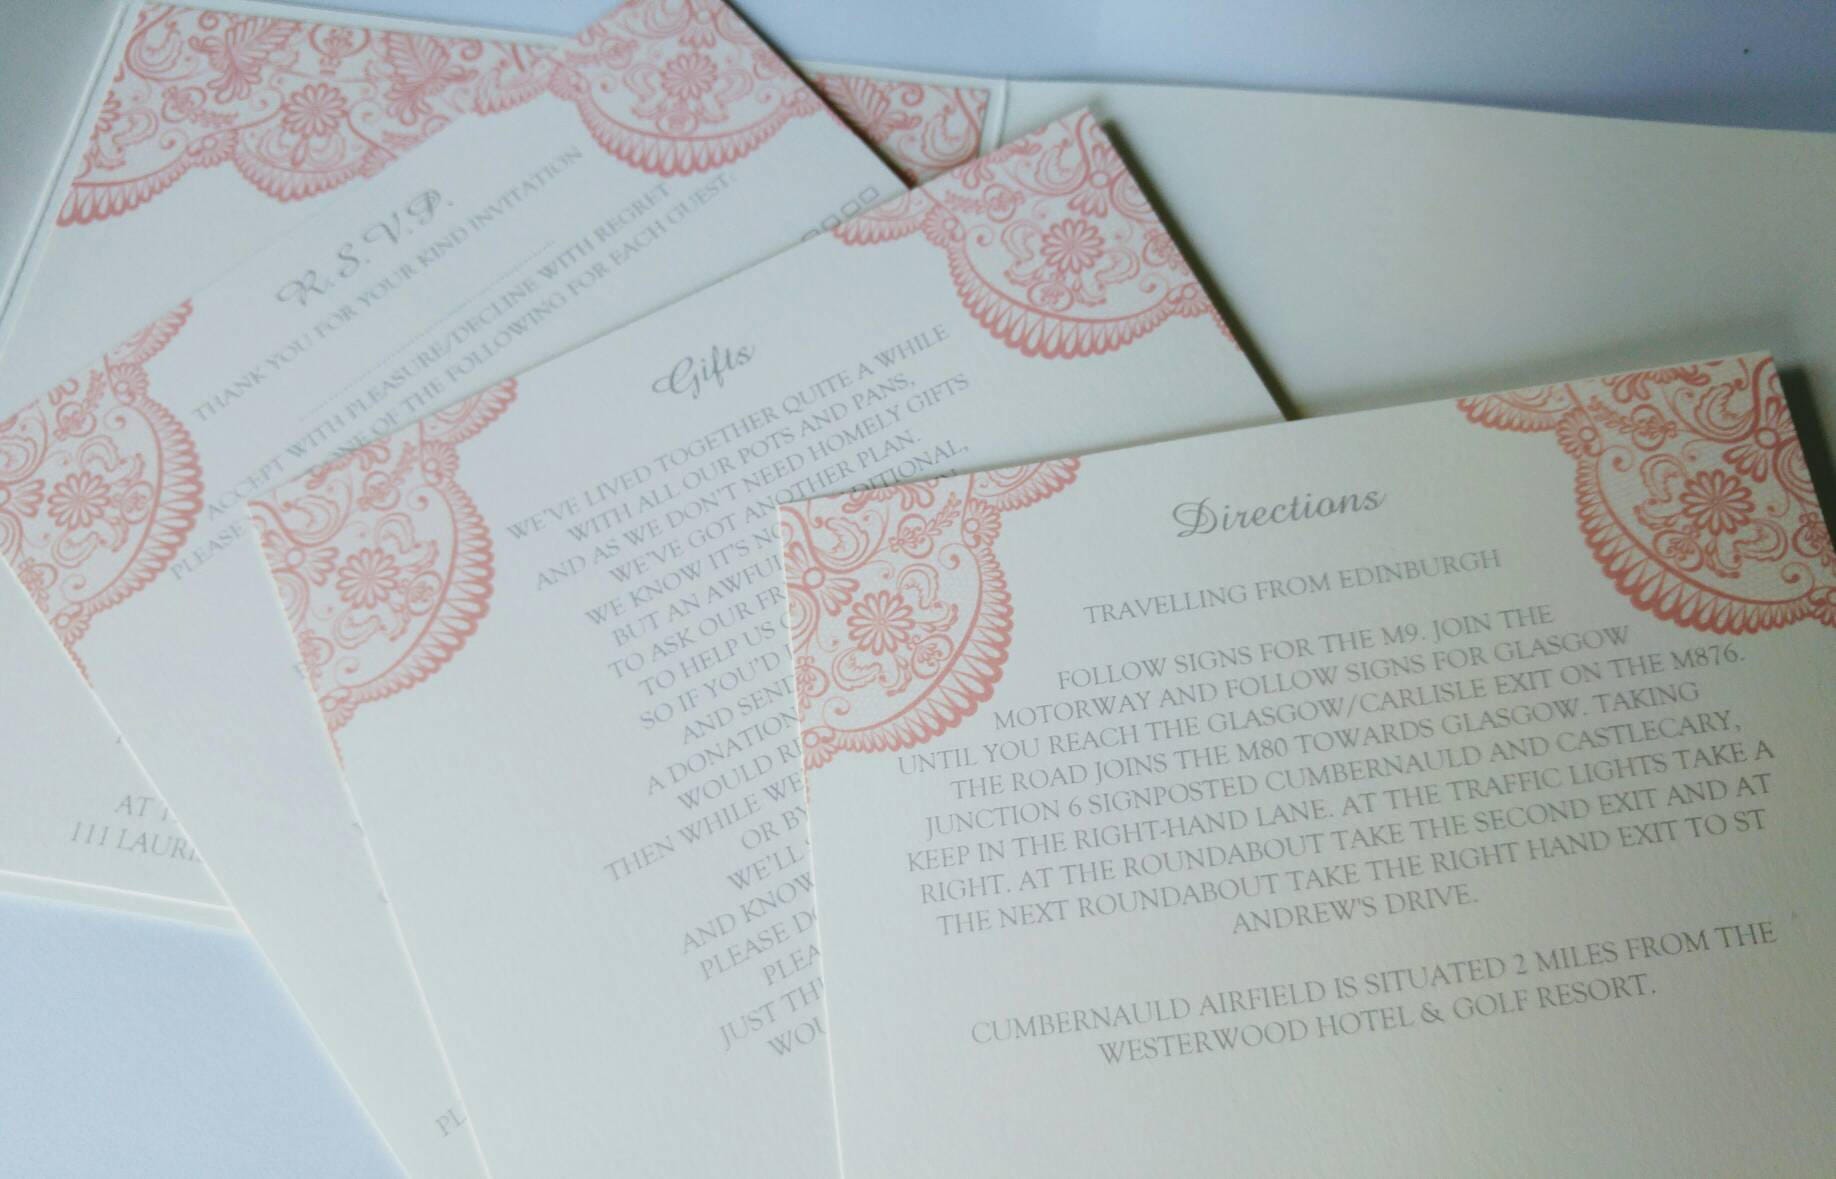 R.S.V.P.
THANK YOU FOR YOUR KIND INVITATION
ACCEPT WITH PLEASURE/DECLINE WITH REGRET
PLEASE ONE OF THE FOLLOWING FOR EACH GUEST:
AT
111
Gifts
WE'VE LIVED TOGETHER QUITE A WHILE
WITH ALL OUR POTS AND PANS,
AND AS WE DON'T NEED HOMELY GIFTS
WE'VE GOT ANOTHER PLAN.
WE KNOW IT'S
BUT AN AWFUL
TO ASK OUR
TO HELP US
SO IF YOU'D
AND SEND
A DONATION
WOULD
THEN WHILE
OR BY
WE'LL
AND KNOW
PLEASE
JUST
Directions
TRAVELLING FROM EDINBURGH
FOLLOW SIGNS FOR THE M9. JOIN THE
MOTORWAY AND FOLLOW SIGNS FOR GLASGOW
UNTIL YOU REACH THE GLASGOW/CARLISLE EXIT ON THE M876.
THE ROAD JOINS THE M80 TOWARDS GLASGOW. TAKING
JUNCTION 6 SIGNPOSTED CUMBERNAULD AND CASTLECARY,
KEEP IN THE RIGHT-HAND LANE. AT THE TRAFFIC LIGHTS TAKE A
RIGHT. AT THE ROUNDABOUT TAKE THE SECOND EXIT AND AT
THE NEXT ROUNDABOUT TAKE THE RIGHT HAND EXIT TO ST
ANDREW'S DRIVE.
CUMBERNAULD AIRFIELD IS SITUATED 2 MILES FROM THE
WESTERWOOD HOTEL & GOLF RESORT.